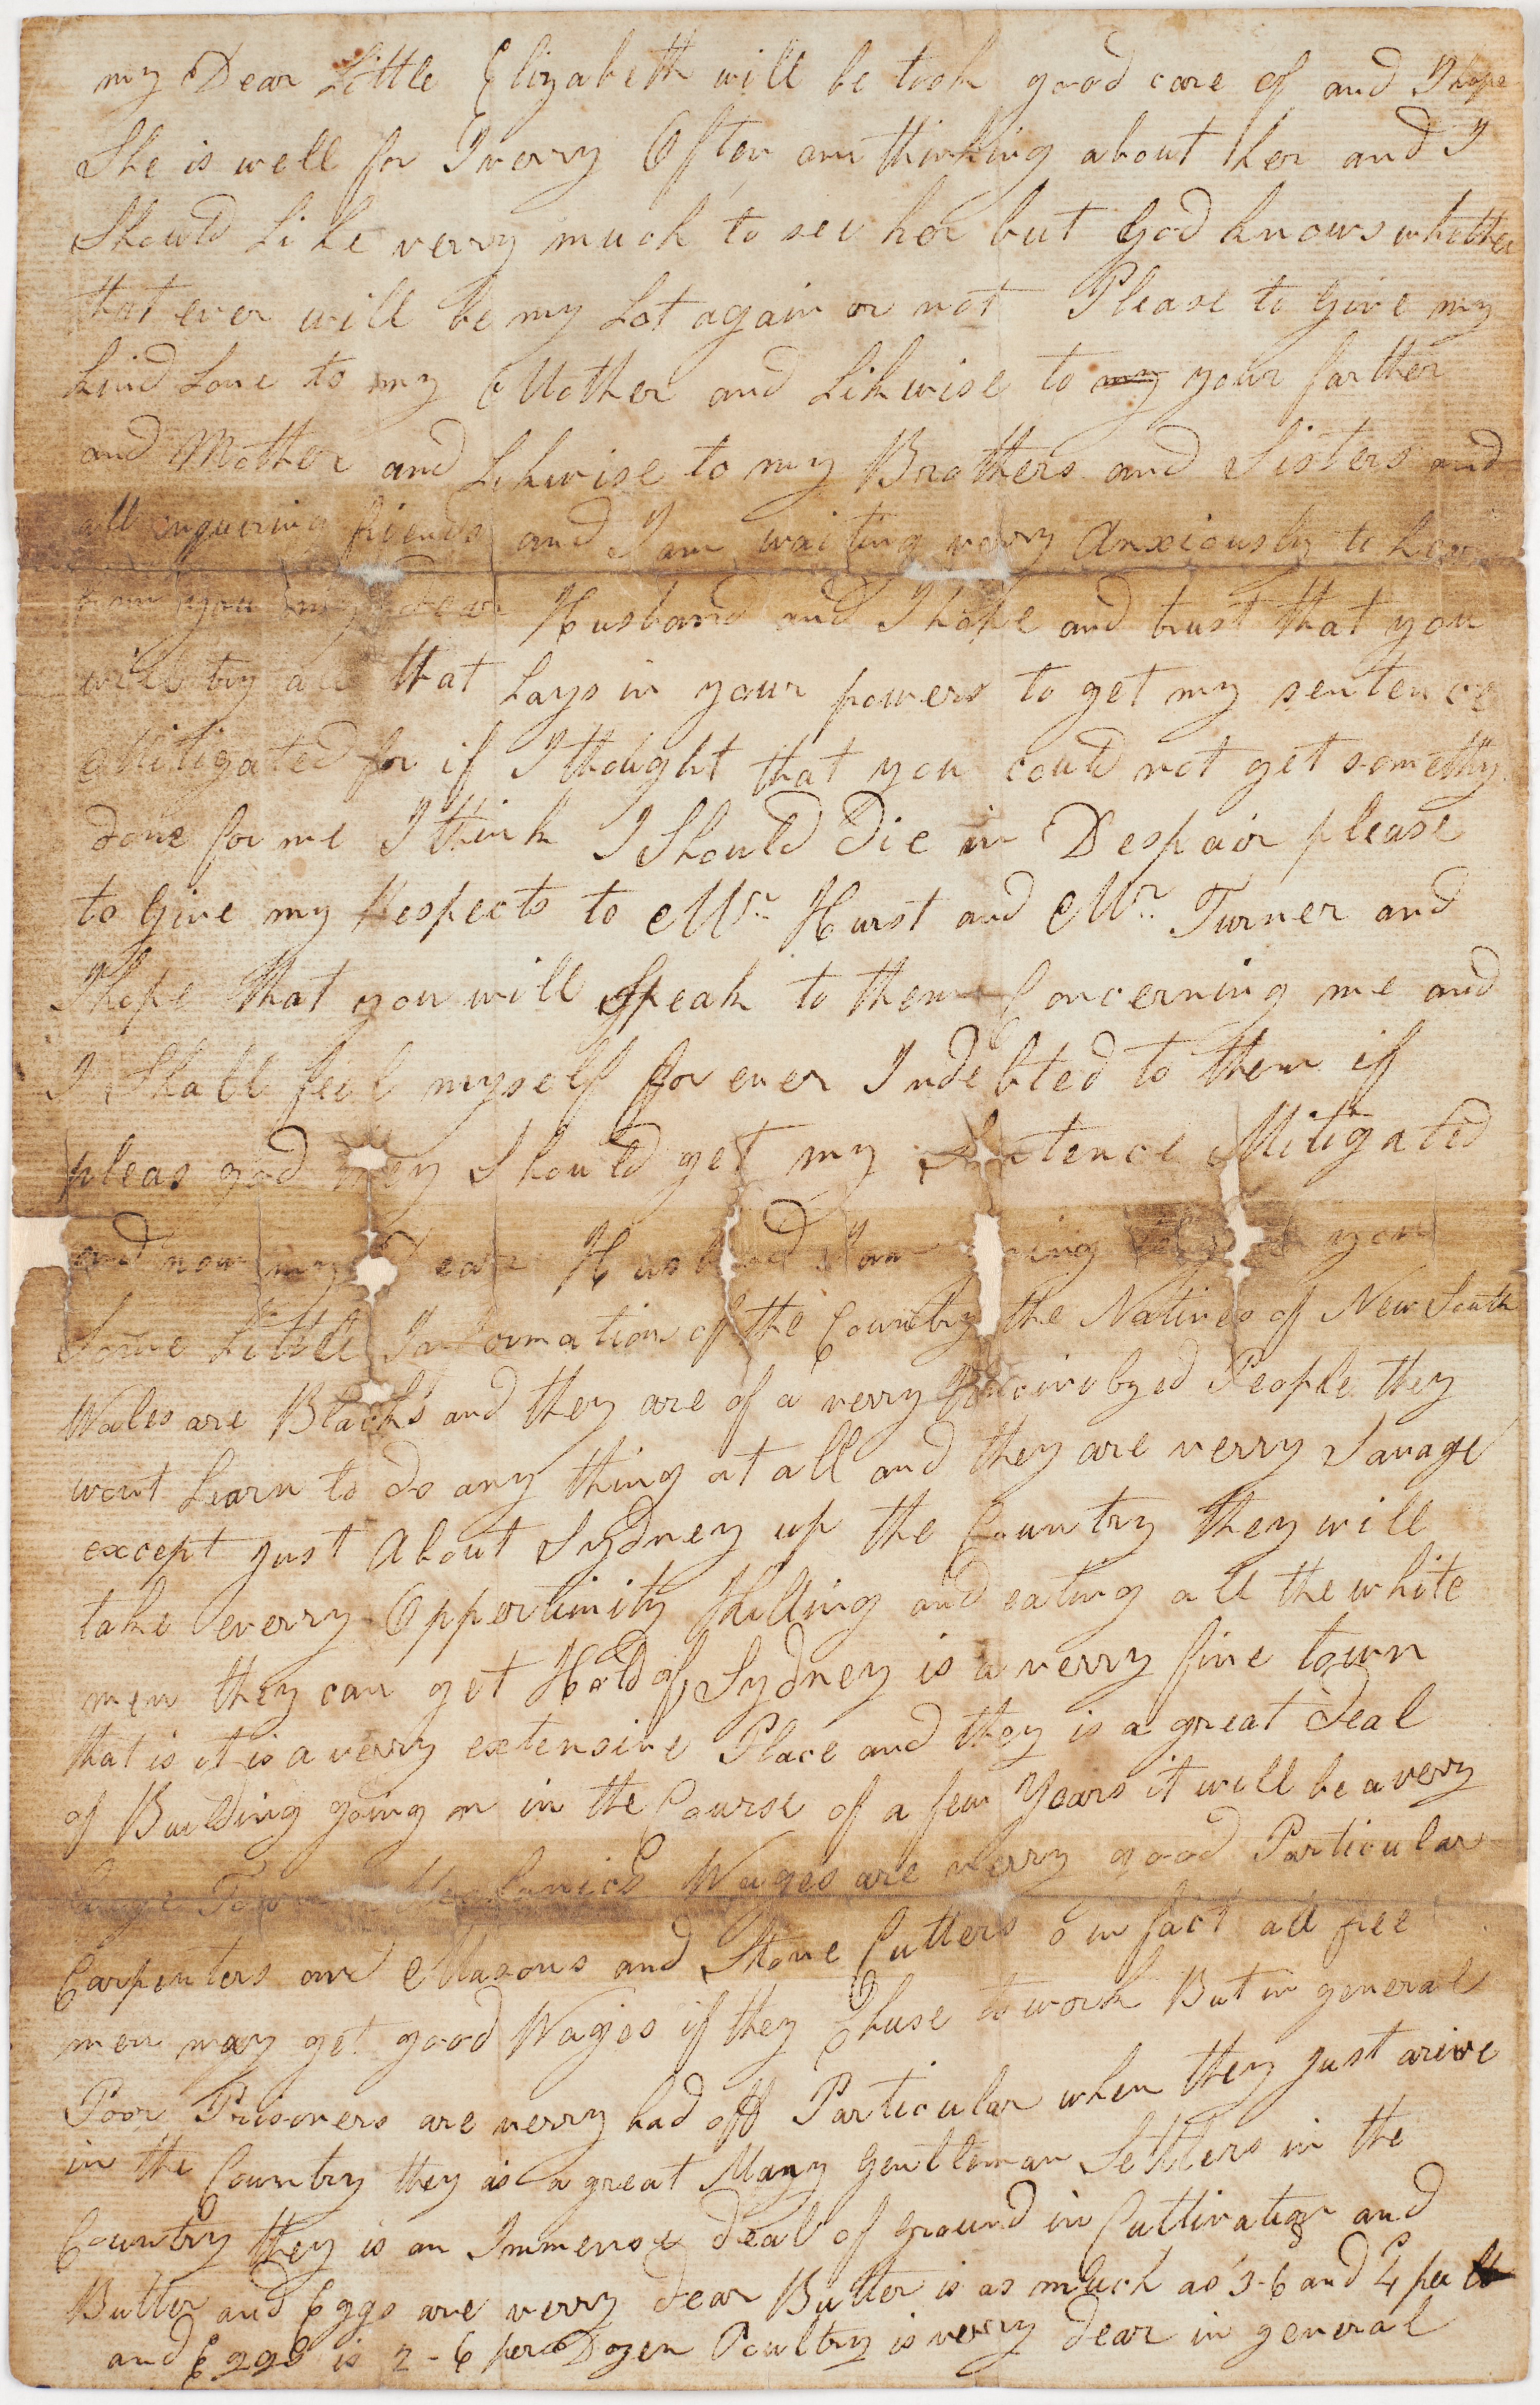 my Dear Little Elizabeth will be took good care of and I hope
She is well for I verry Often am thinking about her and I
Should Like verry much to see her but God knows whether
that ever will be my Lot again or not Please to Give my
kind Love to my Mother and Likwise to my your farther
and Mother and Likwise to my Brothers and Sisters and
all enquering friends and I am waiting verry Anxiously to hear
from you my dear Husband and I hope and trust that you
will try all that Lays in your powers to get my sentence
Mitigated for if I thought that you could not get somethg
done for me I think I Should Die in Despair please
to Give my Respects to Mr. Hurst and Mr. Turner and
I hope that you will Speak to them Concerning me and
I Shall feel myself for ever Indebted to them if
pleas god they Should get my Sentence Mitigated
and now my Dear Husband I am going you
Some Little Information of the Country the Natives of New South
Wales are Blacks and they are of a verry People they
wont Learn to do any thing at all and they are verry Savage
except just About Sydney up the Country they will
take everry Oppertunity Killing and eating all the white
men they can get Hold of Sydney is a verry fine town
that is it is a verry extensive Place and they is a great deal
of Building going on in the Course of a few Years it will be a verry
large Town Mechanics Wages are verry good Particular
Carpenters and Masons and Stone Cutters in fact all free
men may get good Wages if they Chuse to work But in general
Poor Prisoners are verry bad off Particular when they just arive
in the Country they is a great Many Gentleman Settlers in the
Country they is an Immense deal of ground in Cultivation and
Butter and Eggs are verry dear Butter is as much as 3-6 and 4 per lb
and Eggs is 2-6 per Dozen Poultry is verry dear in general